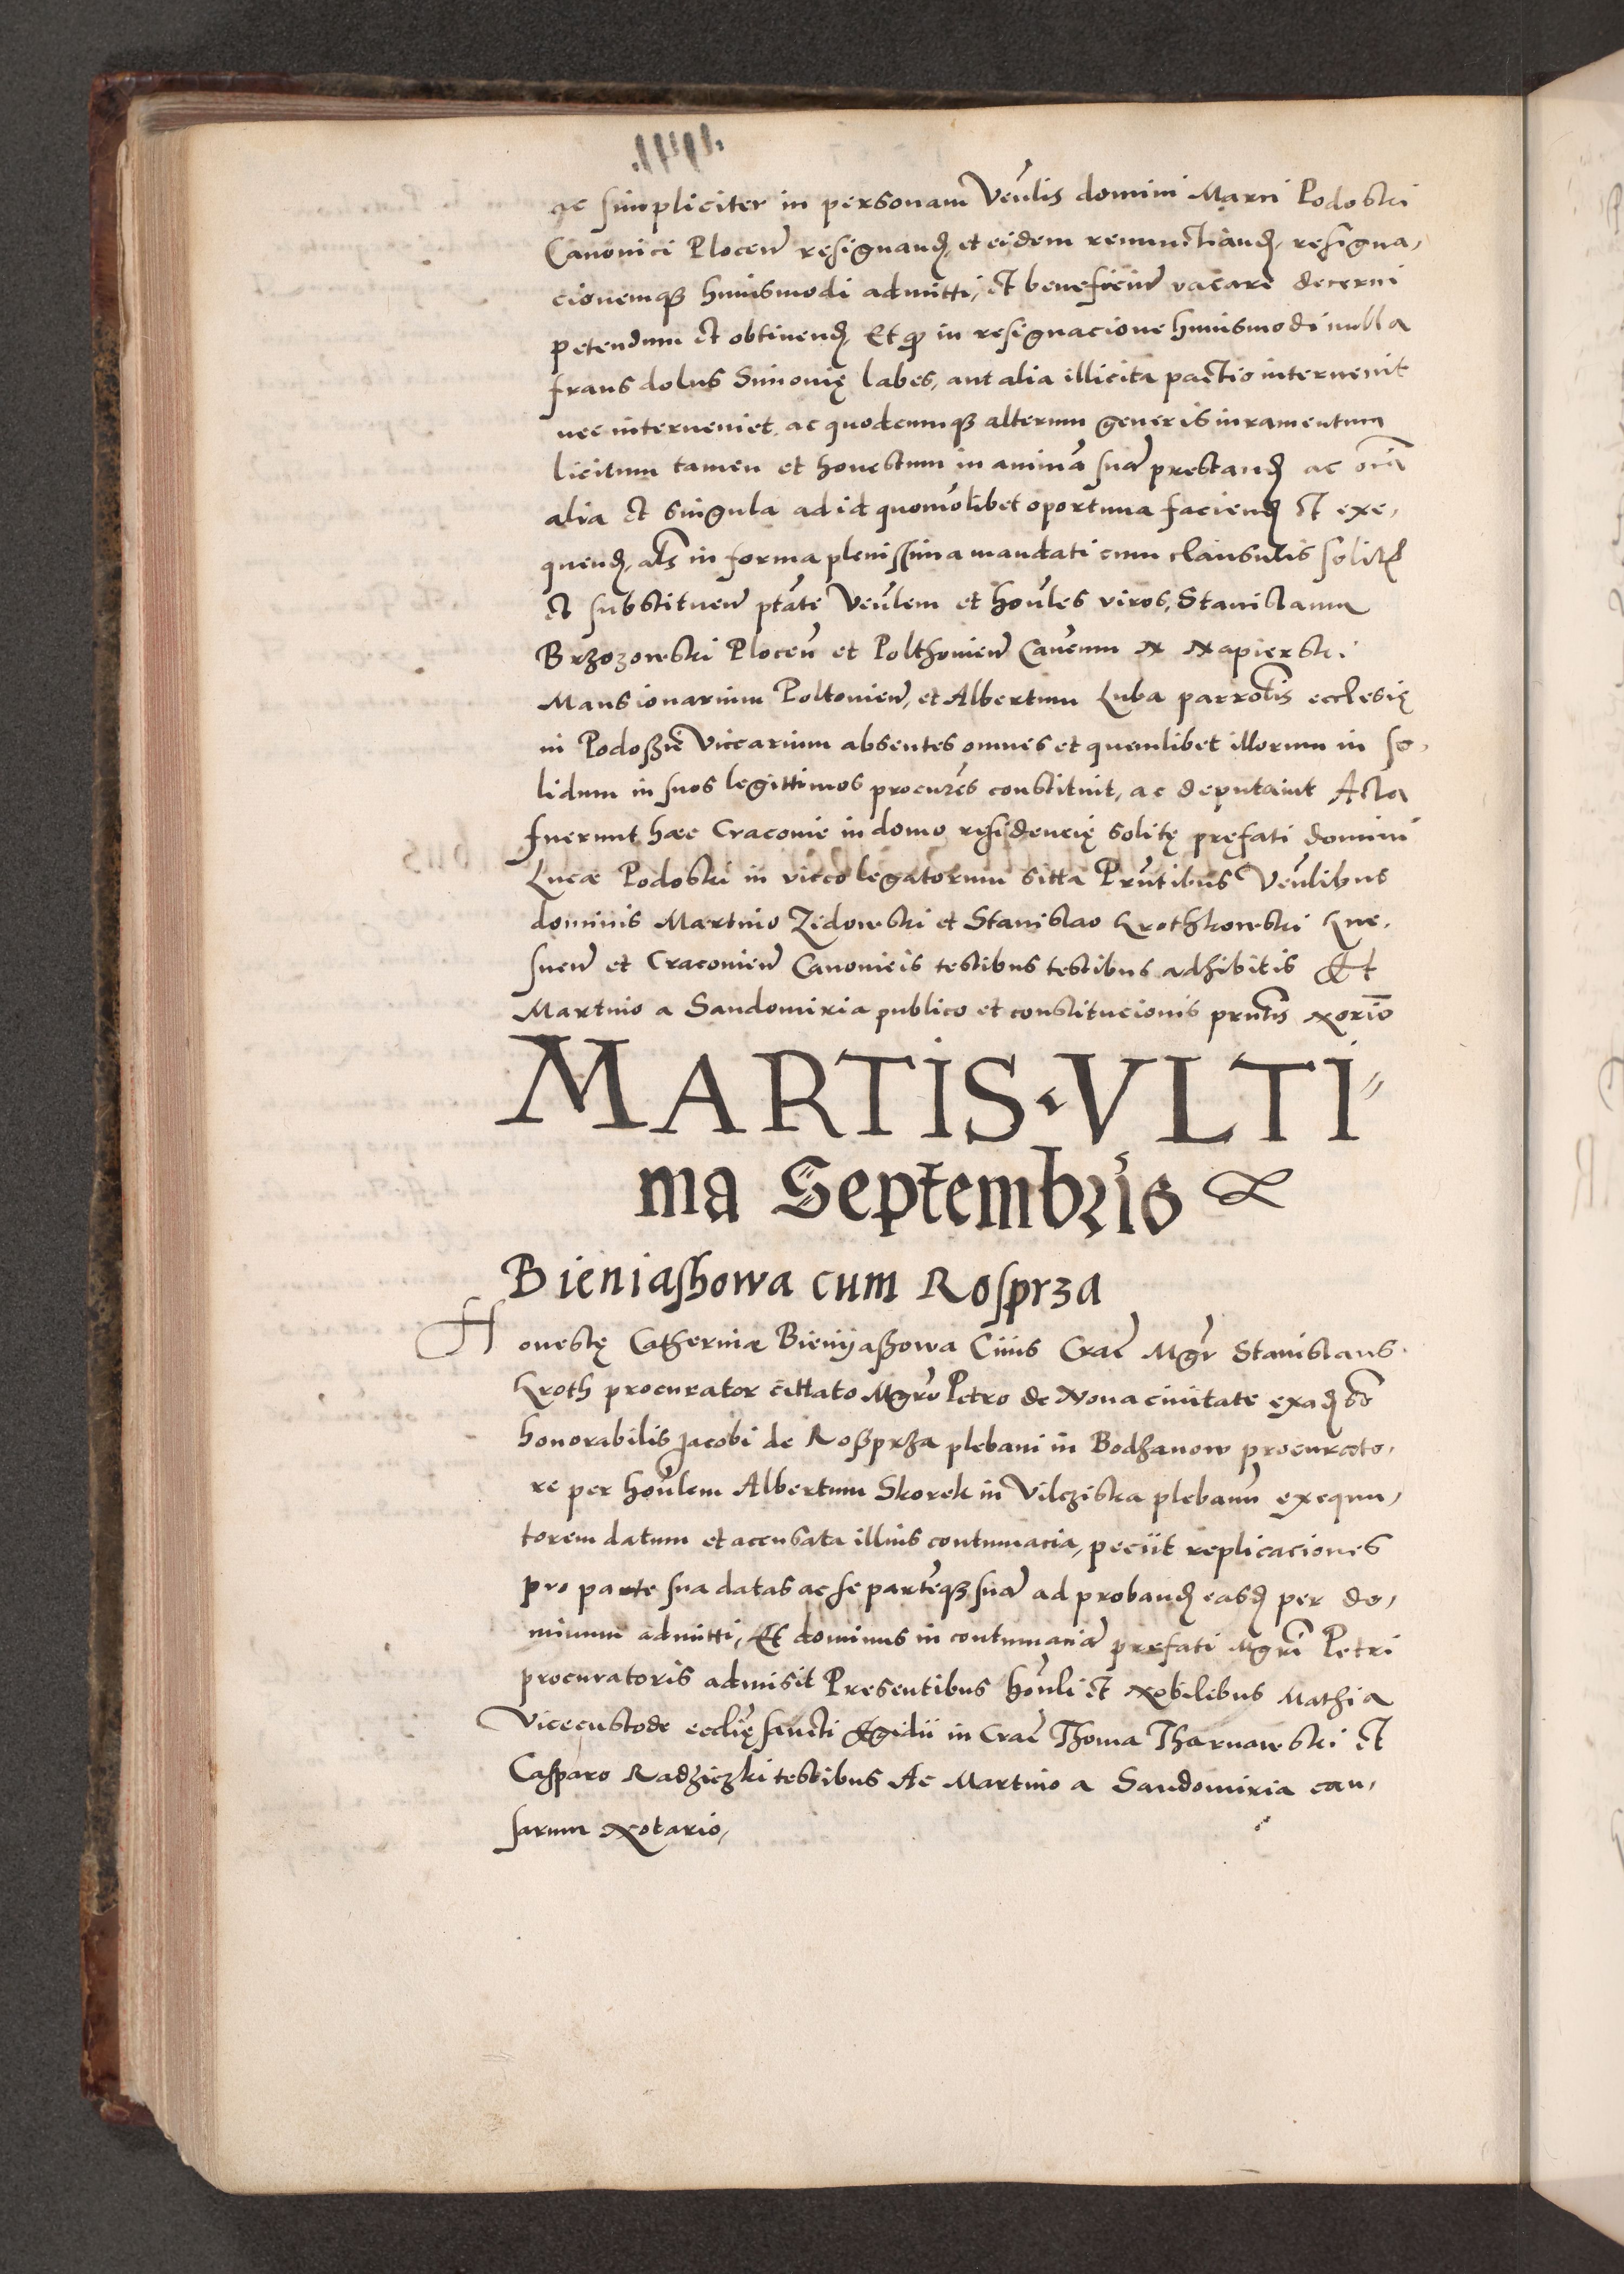 ac simpliciter in personam Ven̄lis domini Marci Podoski
Canonici Plocen̄ resignand̨, et eidem renunctiand̨, resigna,
cionemqȝ huiusmodi admitti, et beneficiū vacare decerni
petendum et obtinend̨, Et qꝫ in resignacione huiusmodi nulla
fraus dolus Simonię labes, aut alia illicita pactio interuenit
nec interueniet, ac quodcumqȝ alterius generis iuramentum
licitum tamen et honestum in animā suā prestand̨ ac oīa
alia et singula ad id quomōlibet oportuna faciend̨ et exe,
quend̨, als̄ in forma plenissima mandati cum clausulis solit̄
et substituen̄ ptāte Ven̄lem et hon̄les viros, Stanislaum
Brzozowski Plocen̄ et Polthonien̄ Can̄cum N Napierski
Mansionarium Poltonien̄, et Albertum Luba parrōlis ecclesię
in Podoßie Viccarium absentes omnes et quemlibet illorum in so,
lidum in suos legittimos procur̄es constituit, ac deputauit Acta
fuerunt hæc Craconie in domo residencię solitę pręfati domini
Lucæ Podoski in vicco legatorum sitta Prn̄tibus Ven̄libus
dominis Martino Zidowski et Stanislao Krothkowski Gne,
snen̄ et Craconien̄ Canonicis testibus testibus adhibitis Et
Martino a Sandomiria publico et constitucionis prn̄tis Norīo
MARTIS · VLTI
ma Septembris
Bieniashowa cum Rosprza
Honestę Catherinæ Bienijaßowa Ciuis Crac̄ Mgr̄ Stanislaus
Kroth procurator cittato Mgr̄o Petro de Noua ciuitate exad̨so
honorabilis Jacobi de Roßprza plebani in Bodzanow procurato,
re per hon̄lem Albertum Skorek in Vilcziska plebanū exequu,
torem datum et accusata illius contumacia, peciit replicaciones
pro parte sua datas ac se partēqȝ suā ad proband̨ easd̨ per do,
minum admitti, Et dominus in contumaciā prefati Mgr̄i Petri
procuratoris admisit Presentibus hon̄li et Nobilibus Mathia
Vicecustode ecclię sancti Egidii in Crac̄ Thoma Tharnawski et
Casparo Radziczki testibus Ac Martino a Sandomiria cau,
sarum Notario,